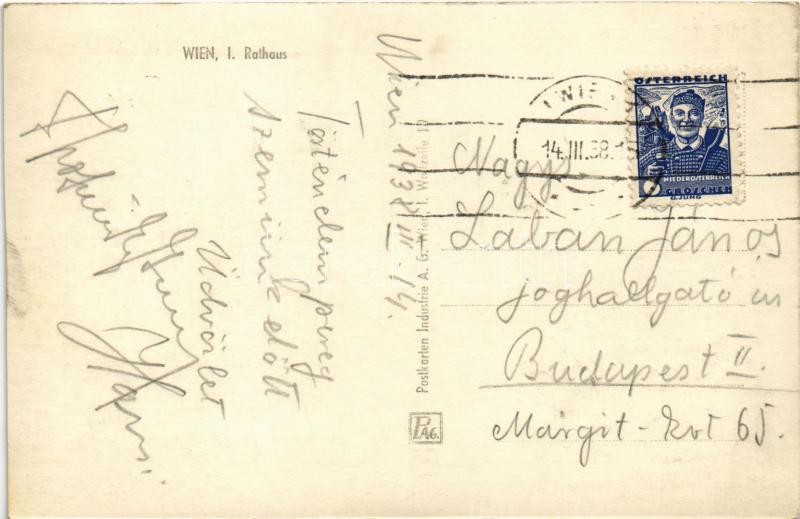 WIEN, I. Rathaus
Wien 1938 III 14.
Történelem pereg
szemünk előtt
Üdvözlet
Hans
Postkarten Industrie A. G. Wien, I. Wollzeile 19
PAG.
WIEN
14.III.38.
ÖSTERREICH
NIEDERÖSTERREICH
GROSCHEN
G.JUNG
Nagys.
Lábán János
joghallgató úr
Budapest II.
Margit-krt 65.